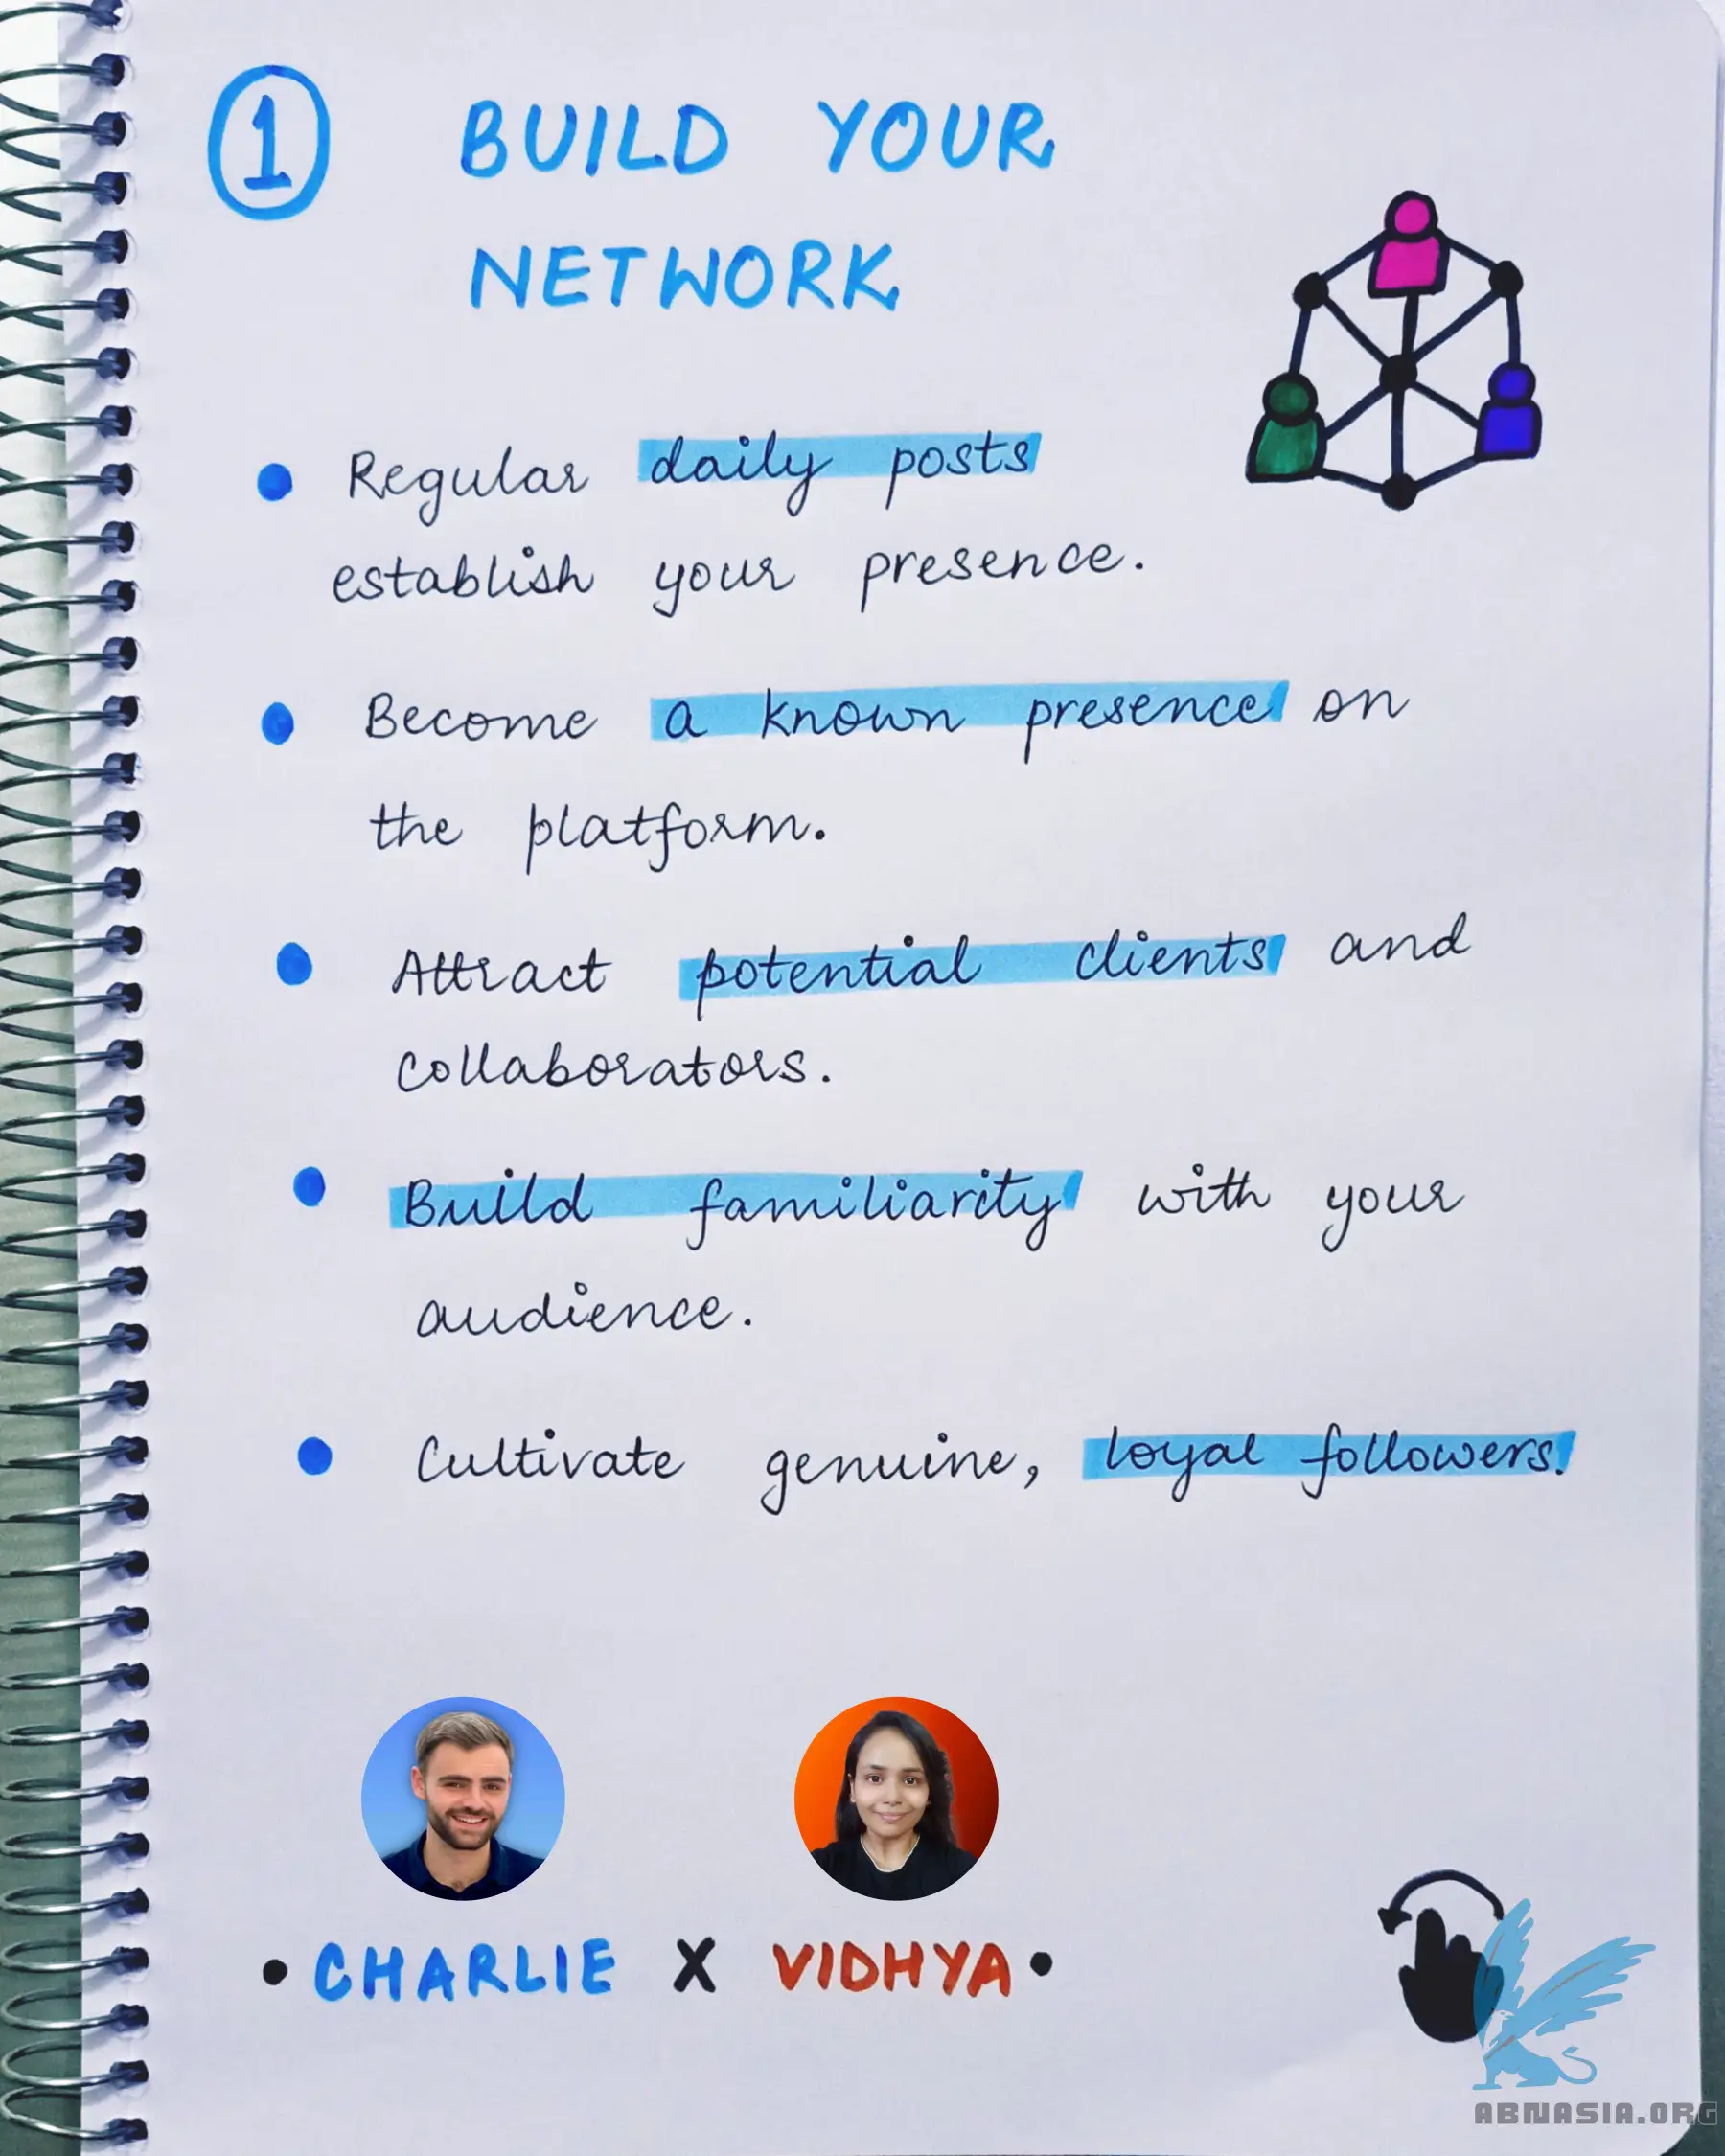 1 BUILD YOUR
NETWORK
Regular daily posts
establish your presence.
Become a known presence on
the platform.
Attract potential clients and
collaborators.
Build familiarity with your
audience.
Cultivate genuine, loyal followers.
• CHARLIE X VIDHYA •
ABNASIA.ORG